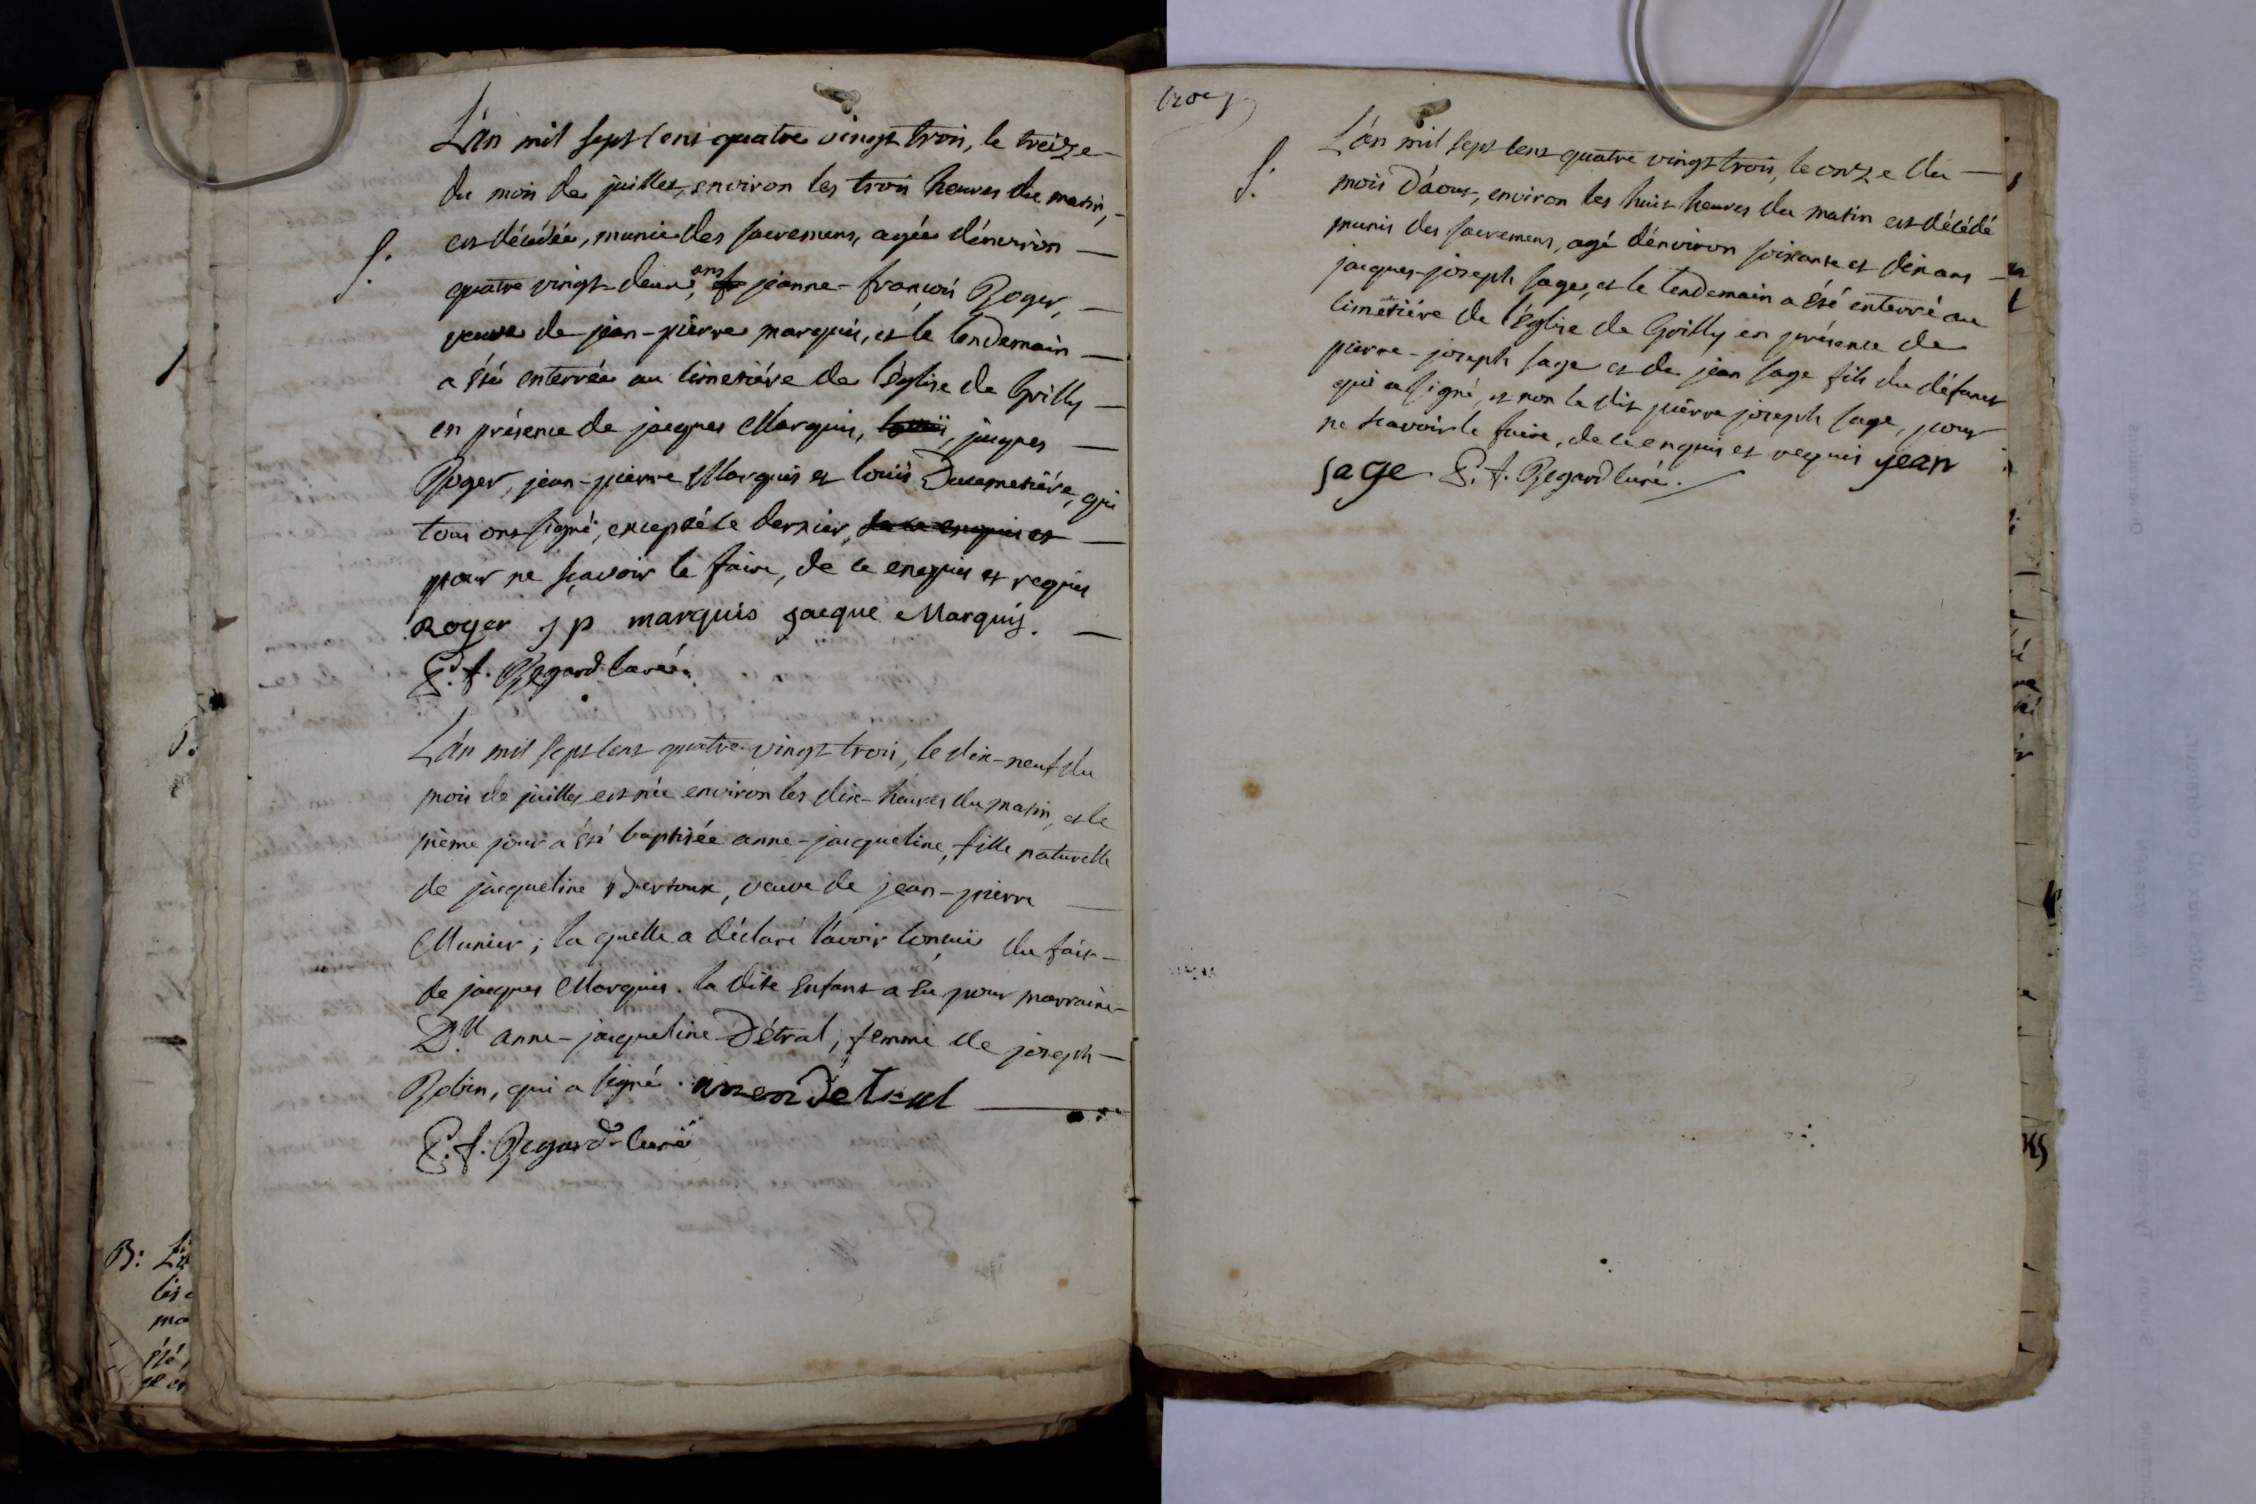 L'an mil sept cent quatre vingt trois, le treize
du mois de juillet, environ les trois heures du matin,
S. est décédée, munie des sacremens, agée d'énviron
quatre vingt-deux ans, jeanne-françois Roger,
veuve de jean-piérre marquis, et le lendemain
a été enterrée au cimetiére de l'église de Grilly
en présence de jacques Marquis, louis, jacques
Roger, jean-pierre Marquis et louis Ducemetiére, qui
tous ont signé, excepté le dernier, de ce enquis et
pour ne sçavoir le faire, de ce enquis et requis
Roger j p marquis jacque Marquis.
P. f. Regard curé.
L'an mil sept cent quatre vingt trois, le dix-neuf du
mois de juillet est née environ les dix-heures du matin, et le
même jour a été baptisée anne-jacqueline, fille naturelle
de jacqueline Bertoux, veuve de jean-pierre
Munier; la quelle a déclaré l'avoir conçuë du fait
de jacques Marquis. la dite Enfant a Eu pour marraine
Dlle anne-jacqueline Détral, femme de joseph
Robin, qui a signé.
P. f. Regard curé
B:
S. L'an mil sept cent quatre vingt trois, le onze du
mois d'àout, environ les huit heures du matin est décédé
munis des sacremens, agé d'énviron soixante et dix ans
jacques-joseph sage, et le lendemain a été enterré au
cimetiére de l'église de Grilly en présence de
pierre-joseph sage et de jean sage fils du défunt
qui a signé, et non le dit piérre joseph sage, pour
ne scavoir le faire, de ce enquis et requis jean
sage P. f. Regard curé.